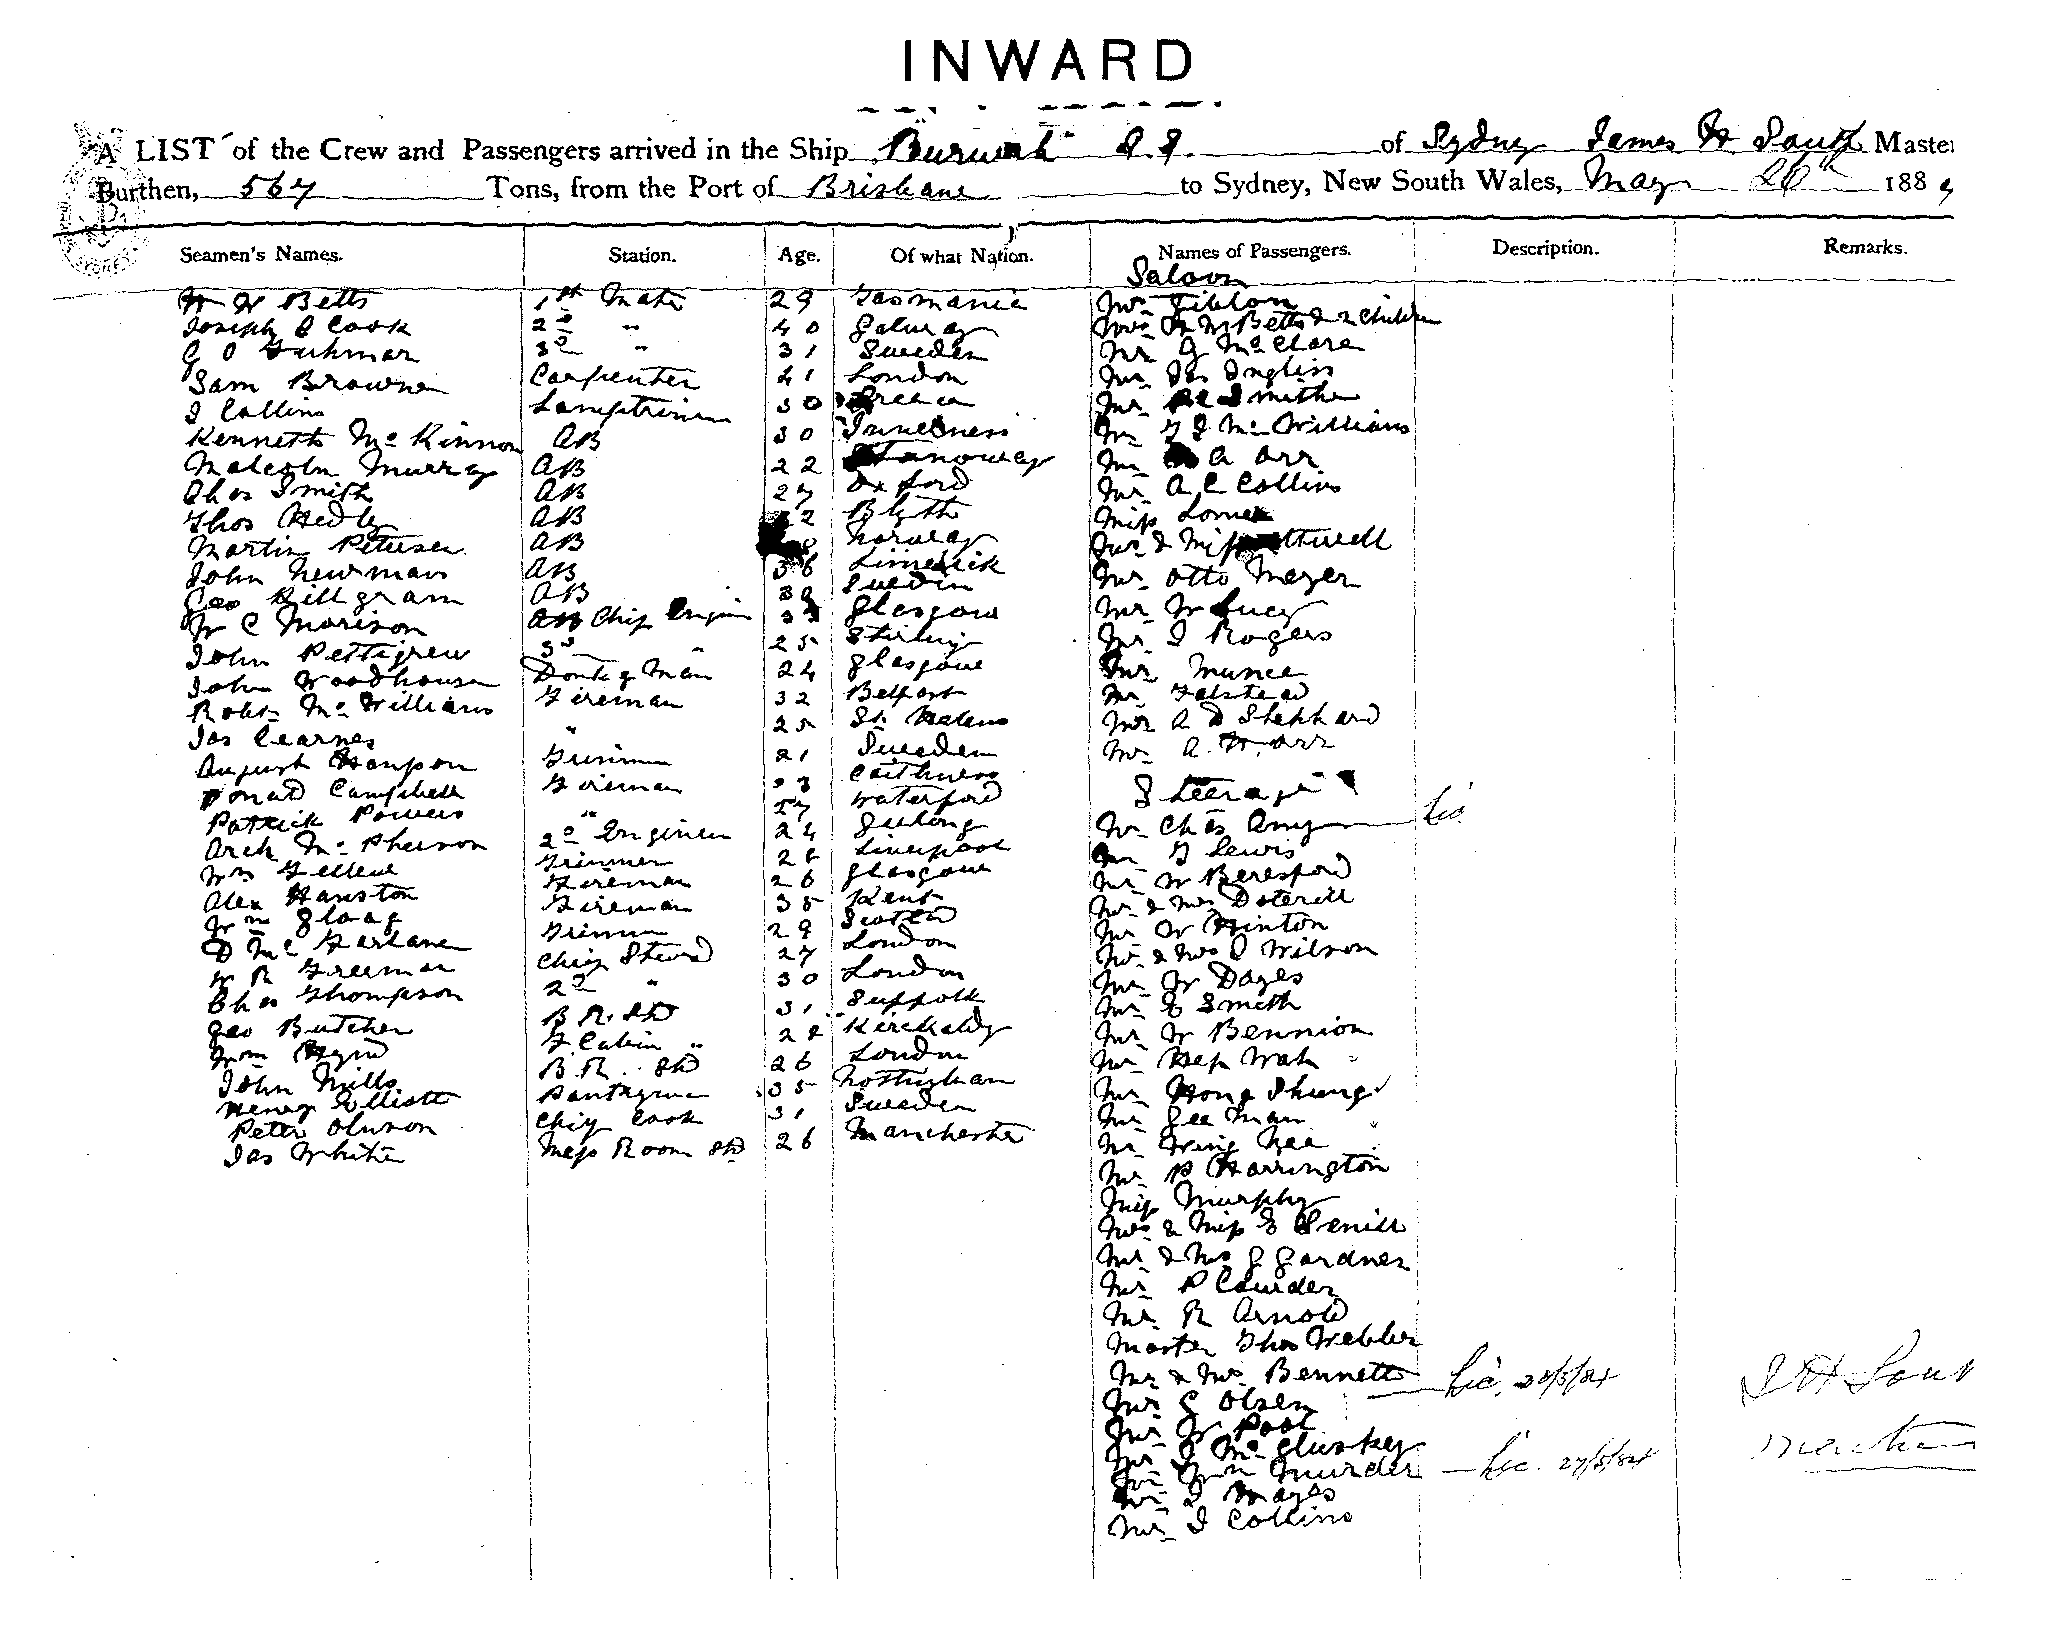 INWARD
A LIST of the Crew and Passengers arrived in the Ship Burwah S.S. of Sydney James H South Master
Burthen, 567 Tons, from the Port of Brisbane to Sydney, New South Wales, May 26th 188
Seamen's Names. Station. Age. Of what Nation. Names of Passengers. Description. Remarks.
Saloon
W W Betts 1st Mate 29 Tasmania Mr
Joseph Cook 2d " 40 Galway Mrs Betts & 2 Children
G O 3d " 31 Sweden Mr G McClare
Sam Browne Carpenter 41 London Mr Jas Inglis
J Collins Lamptrimm 30 Greece Mr Smith
Kenneth McKinnon AB 30 Inverness Mr McWilliams
Malcolm Murray AB 22 Mr A Orr
Chas Smith AB 27 Oxford Mr A C Collins
Thos Hedly AB 2 Blyth Miss
Martin Petersen AB 8 Norway Mr & Miss
John Newman AB 36 Limerick Mr Otto Meyer
Geo AB Sweden Mr W Lucy
W C Morison AB Chif Engin Glasgow Mr J Rogers
John Pettigrew 3d " 25 Stirling Mr Munce
John Woodhouse Donkeyman 24 Glasgow Mr Falstead
Robt McWilliams Fireman 32 Belfast Mr A D Shephard
Jas Cearnes " 25 St Helens Mr A. W. Orr
August Hanson Trimm 21 Sweden
Donald Campbell Foireman 23 Caithness Steerage
Patrick Powers " 27 Waterford Mr Chas Amy Lic
Arch McPherson 2d Enginen 24 Geelong Mr G Lewis
Wm Trimmer 28 Liverpool Mr W Beresford
Alex Hanston Fireman 26 Glasgow Mr & Mrs Doterill
Wm Gloag Fireman 35 Kent Mr W Hinton
D McFarlane Trimm 29 Scotld Mr & Mrs Wilson
W R Freeman Chief Stewd 27 London Mr W Dayes
Chas Thompson 2d " 30 London Mr E Smith
Geo Butcher B R Std 31 Suffolk Mr W Bennion
Wm Hynd F Cabin " 28 Kirckaldy Mr Hep Wah "
John Mills B.R. Std 26 London Mr Hong Shung
Henry Elliott Pantrymn 35 Nottingham Mr Gee Man
Peter Oluson Chif Cook 31 Sweden Mr Wing Kee
Jas White Mess Room Std 26 Manchester Mr P Harrington
Miss Murphy
Mrs & Miss E
Mr & Mrs G Gardner
Mr P Cawder
Mr R Arnold
Master Thos Webber
Mr & Mrs Bennett Lic. 28/5/84 J H South
Mr G Olsen
Mr W Post
Mr J McGluskey Master
Mr Wm Murder Lic. 27/5/84
Mr J Hayes
Mr J Collins